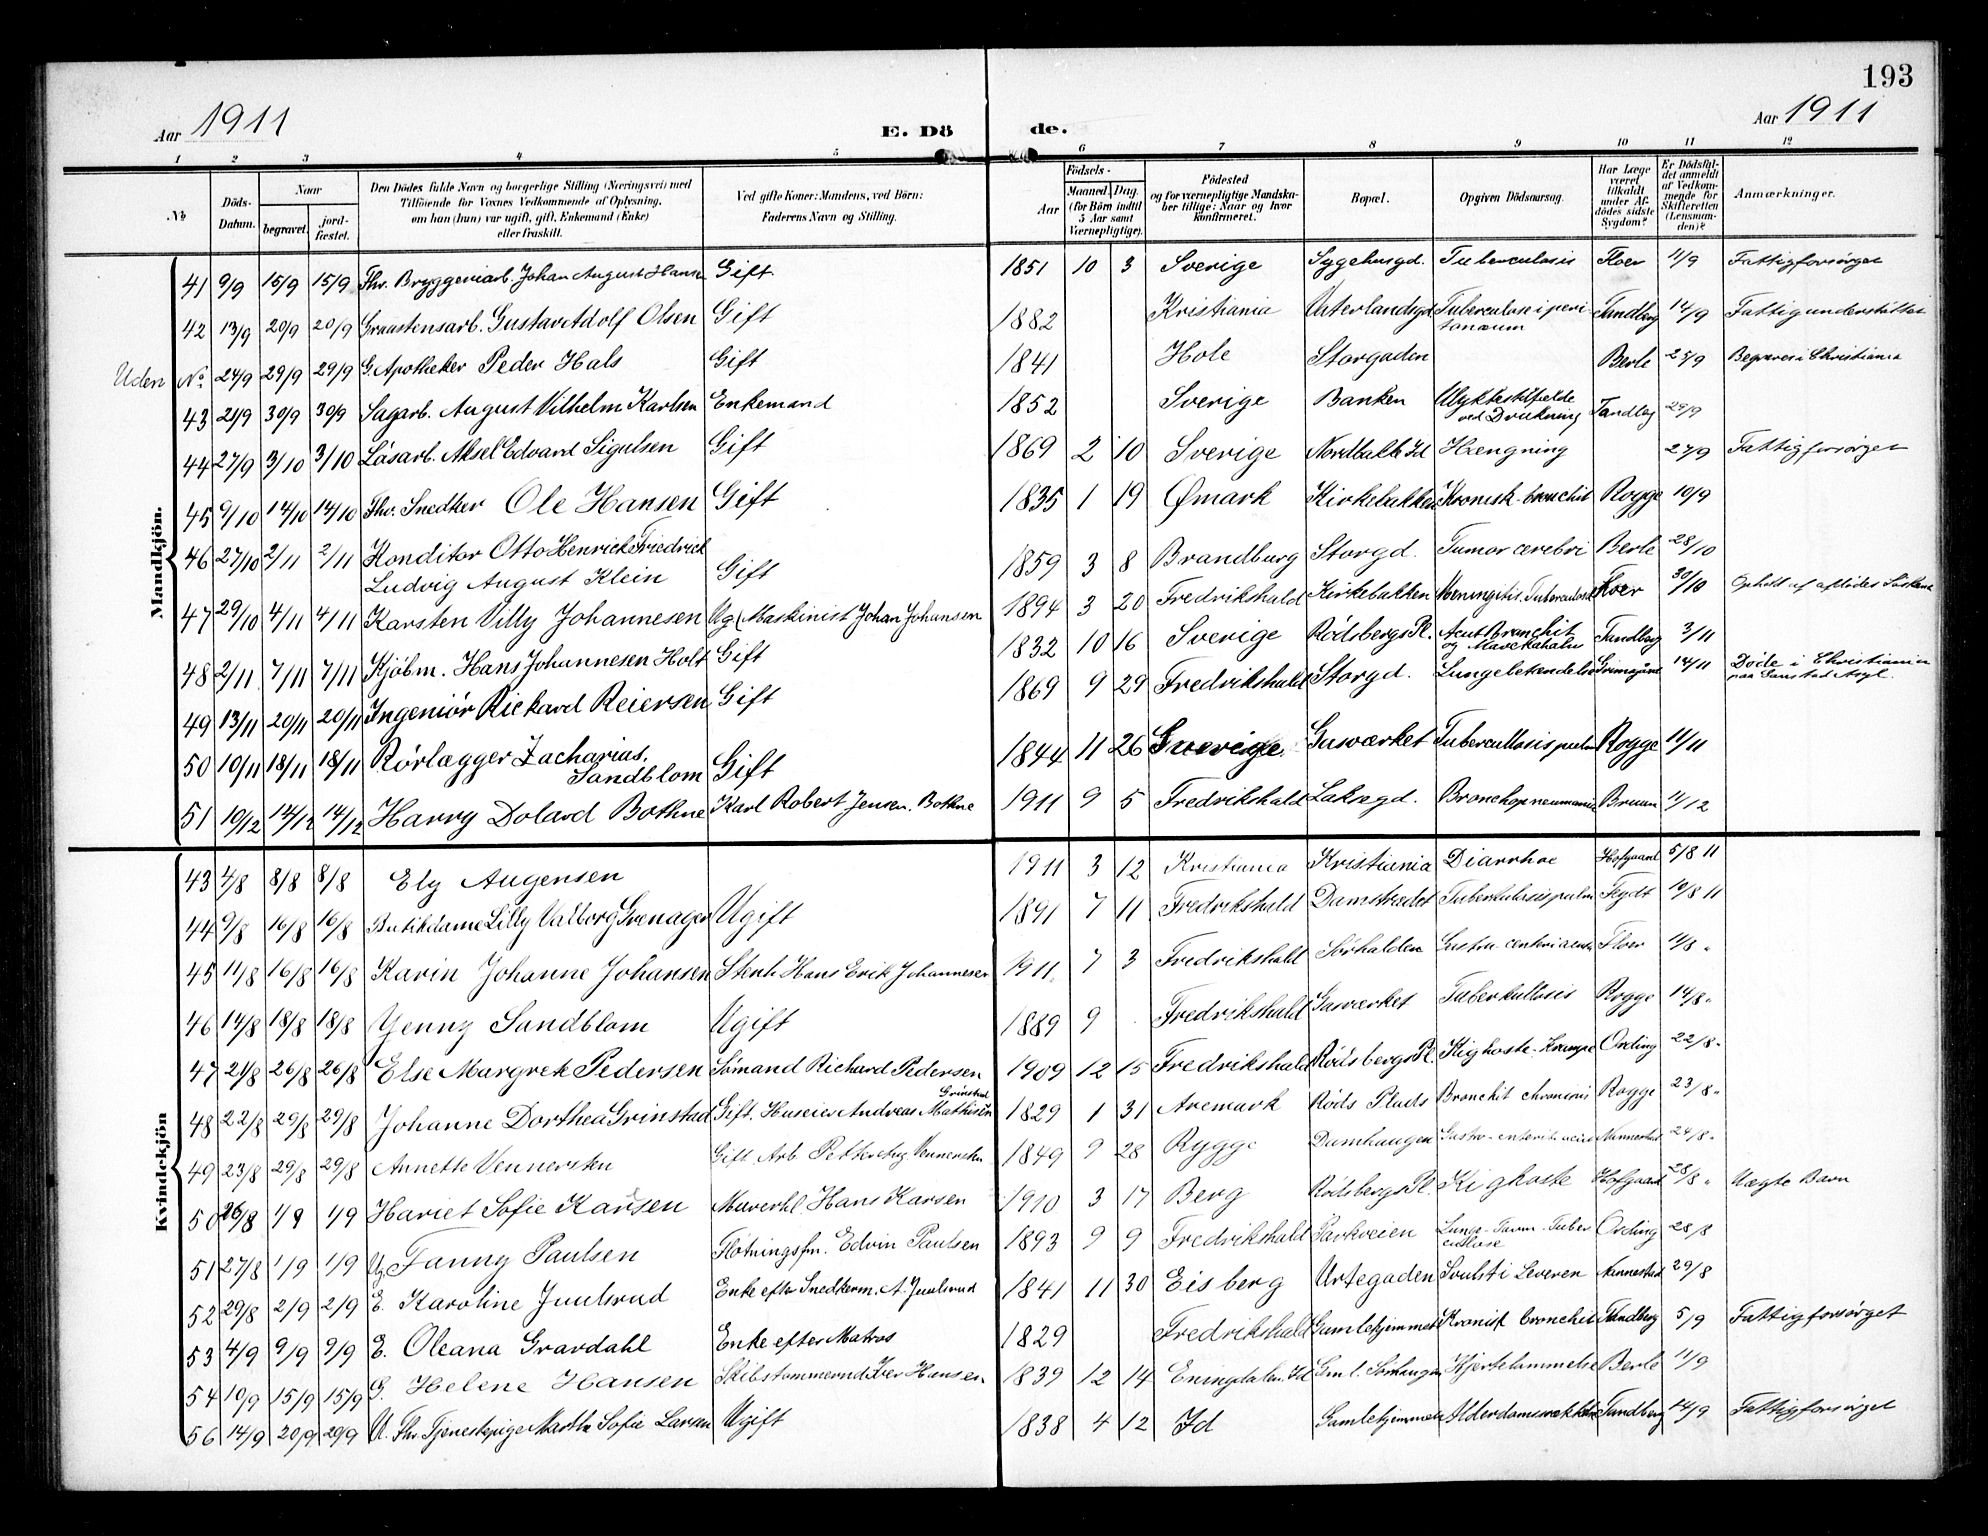 193
Aar 1911
E. Dö de.
Aar 1911
1 2 3 4 5 6 7 8 9 10 11 12
No
Döds-Datum.
Naar
begravet.
jordfæstet.
Den Dödes fulde Navn og borgerlige Stilling (Næringsvei) med
Tilföiende for Voxnes Vedkommende af Oplysning,
om han (hun) var ugift, gift, Enkemand (Enke)
eller fraskilt.
Ved gifte Koner: Mandens, ved Börn:
Faderens Navn og Stilling.
Födsels-
Aar
Maaned. Dag.
(for Börn indtil
5 Aar samt
Værnepligtige).
Födested
og for værnepligtige Mandskaber tillige: Naar og hvor
konfirmeret.
Bopæl.
Opgiven Dödsaarsag.
Har Læge været tilkaldt under Afdödes sidste Sygdom?
Er Dödsfaldet anmeldt af Vedkommende for Skifteretten (Lensmanden)?
Anmærkninger.
Mandkjön.
41 9/9 15/9 15/9 Fhv. Bryggeriarb. Johan August Hansen Gift 1851 10 3 Sverige Sygehusgd. Tuberculosis Floer 11/9 Fattigforsørget
42 13/9 20/9 20/9 Graastensarb. Gustav Adolf Olsen Gift 1882 Kristiania Tuberculose i peritonæum Tandberg 14/9 Fattigunderstøttet
Uden No 24/9 29/9 29/9 G. Apotheker Peder Hals Gift 1841 Hole Storgaden Berle 25/9 Begraves i Christiania
43 21/9 30/9 30/9 Sagarb. August Vilhelm Karlsen Enkemand 1852 Sverige Banken Ulykkestilfælde ved Drukning 29/9
44 27/9 3/10 3/10 Løsarb. Aksel Edvard Sigulsen Gift 1869 2 10 Sverige Nordbakke Id Hængning 27/9 Fattigforsørget
45 9/10 14/10 14/10 Fhv. Snedker Ole Hansen Gift 1835 1 19 Ømark Kirkebakken Kronisk bronchit Rogge 10/9
46 27/10 2/11 2/11 Konditor Otto Henrick Friedrich
Ludvig August Klein Gift 1859 3 8 Brandburg Storgd. Tumor cerebri Berle 28/10
47 29/10 4/11 4/11 Karsten Villy Johannesen Ug ( Maskinist Johan Johansen 1894 3 20 Fredrikshald Kirkebakken Meningitis Tuberculosa Floer 30/10
48 2/11 7/11 7/11 Kjøbm. Hans Johannesen Holt Gift 1832 10 16 Sverige Rødsbergs Pl. Acut Bronchit og Tandberg 3/11
49 13/11 20/11 20/11 Ingeniør Rickard Reiersen Gift 1869 9 29 Fredrikshald Storgd. Lungebetændelse 14/11 Døde i Christiania paa Asyl.
50 10/11 18/11 18/11 Rørlægger Zacharias
Sandblom Gift 1844 11 26 Sverige Gasværket Tuberculosis pulm Rogge 11/11
51 10/12 14/12 14/12 Harry Dolard Bothne Karl Robert Jensen Bothne 1911 9 5 Fredrikshald Laksegd. Bronchopneumonia Bruun 11/12
Kvindekjön
43 4/8 8/8 8/8 Ely Augensen 1911 3 12 Kristiania Kristiania Diarrhoe Hofgaard 5/8 11
44 9/8 16/8 16/8 Butikdame Lilly Valborg Svenager Ugift 1891 7 11 Fredrikshald Damstrædet Tuberkulosis pulm Feydt 10/8 11
45 11/8 16/8 16/8 Karin Johanne Johansen Stenh Hans Erik Johannesen 1911 7 3 Fredrikshald Sørhalden Floer 11/8 "
46 14/8 18/8 18/8 Jenny Sandblom Ugift 1889 9 Fredrikshald Gasværket Tuberkullosis Rogge 14/8 "
47 21/8 26/8 26/8 Else Margrete Pedersen Sømand Richard Pedersen 1909 12 15 Fredrikshald Rødsbergs Pl. Kighoste - Krampe Ording 22/8 "
48 22/8 29/8 29/8 Johanne Dorthea Grinstad Gift. Huseier Andreas Mathisen Grinstad 1829 1 31 Aremark Røds Plads Bronchit chronicus Rogge 23/8 "
49 23/8 29/8 29/8 Annette Vennersten Gift Arb Petter Aug Vennersten 1849 9 28 Rygge Damhaugen Nannestad 24/8 "
50 26/8 1/9 1/9 Hariet Sofie Karsen Murerhl Hans Karsen 1910 3 17 Berg Rødsbergs Pl. Kighoste Hofgaard 28/8 " Uægte Barn
51 27/8 1/9 1/9 U Fanny Paulsen Fløtningsfm. Edvin Paulsen 1893 9 9 Fredrikshald Parkveien Lunge - Tarm - Tuberculose Ording 28/8
52 29/8 2/9 2/9 E. Karoline Juulsrud Enke efter Snedkerm. A. Juulsrud 1841 11 30 Eisberg Urtegaden Svulst i Leveren Nannestad 29/8
53 4/9 9/9 9/9 E. Oleana Gravdahl Enke efter Matros 1829 Fredrikshald Gamlehjemmet Kronisk bronchit Tandberg 5/9 Fattigforsørget
54 10/9 15/9 15/9 G. Helene Hansen Skibstømmermd Iver Hansen 1839 12 14 Eningdalen, Id Hjertelammelse Berle 11/9
56 14/9 20/9 20/9 U. Fhv. Tjenestepige Martha Sofie Larsen Ugift 1838 4 12 Id Gamlehjemmet Alderdomssvækkelse Tandberg 14/9 Fattigforsørget